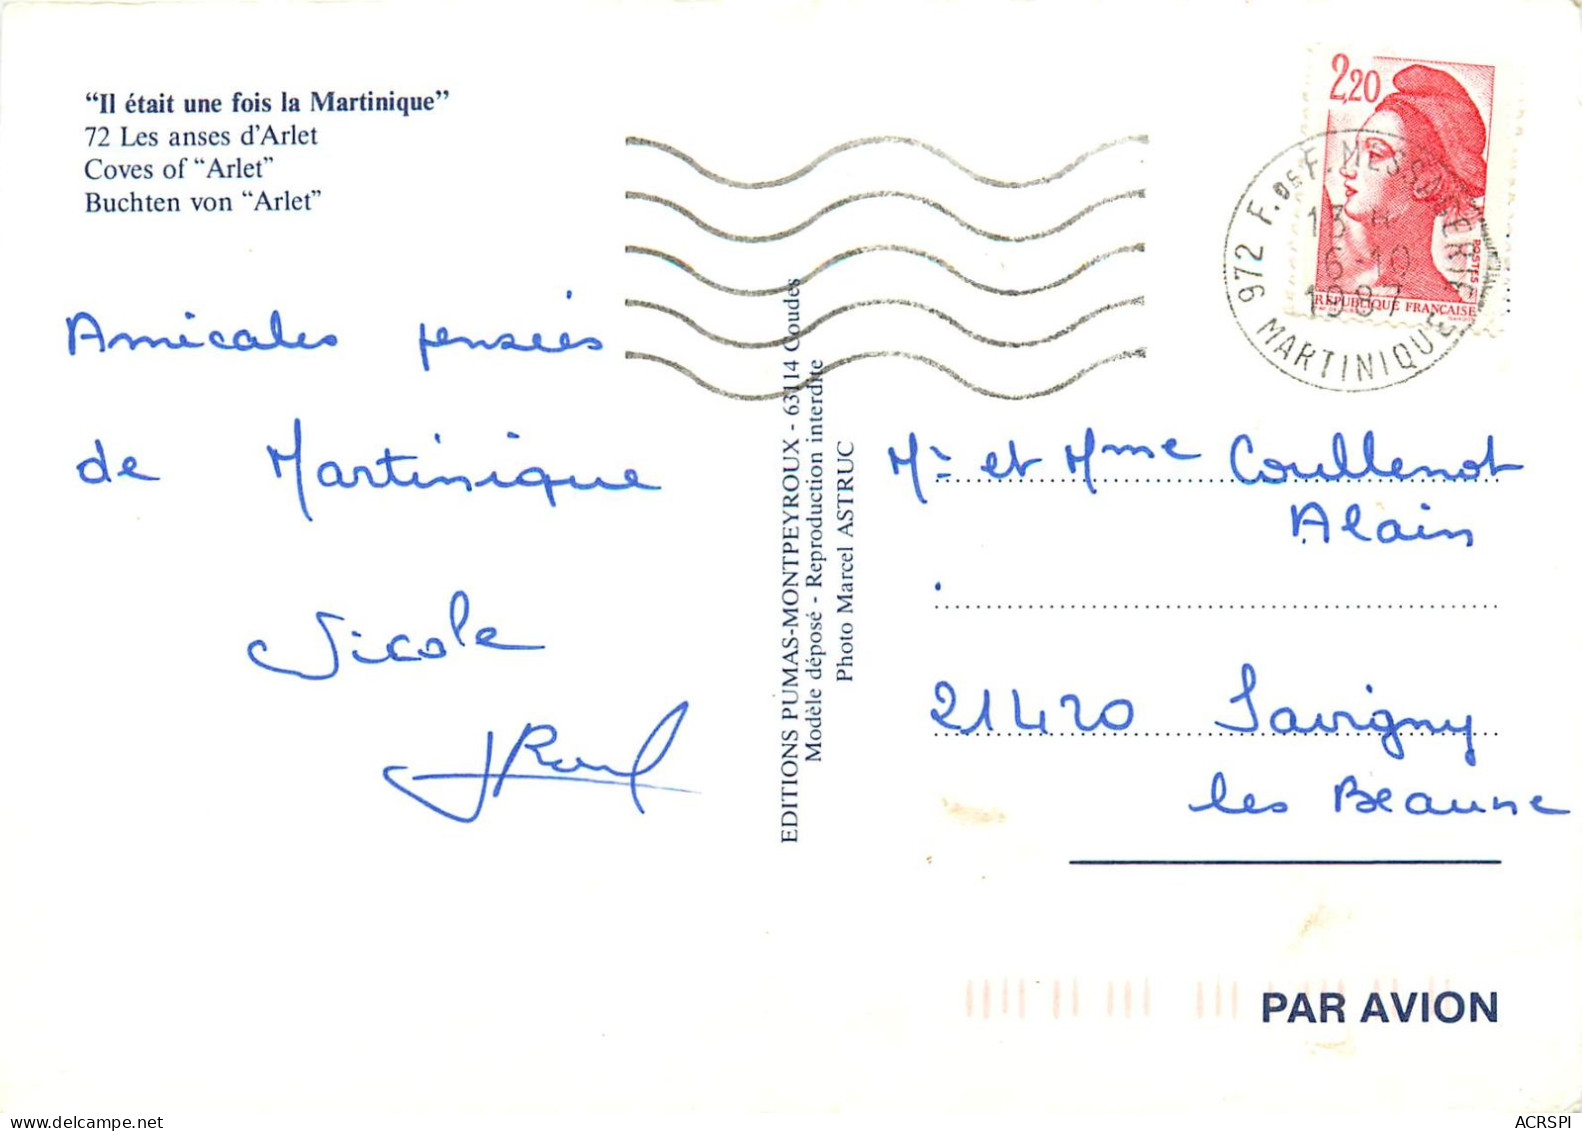 “Il était une fois la Martinique”
72 Les anses d’Arlet
Coves of “Arlet”
Buchten von “Arlet”
Amicales pensées
de Martinique
Nicole
EDITIONS PUMAS-MONTPEYROUX - 63114 Coudes
Modèle déposé - Reproduction interdite
Photo Marcel ASTRUC
2,20
POSTES
RÉPUBLIQUE FRANÇAISE
972 F. DE F. MESSAGERIE
13 H
6-10
1987
MARTINIQUE
Mr et Mme Coullenot
Alain
21420 Savigny
les Beaune
PAR AVION
Il était une fois la Martinique
ACRSPI